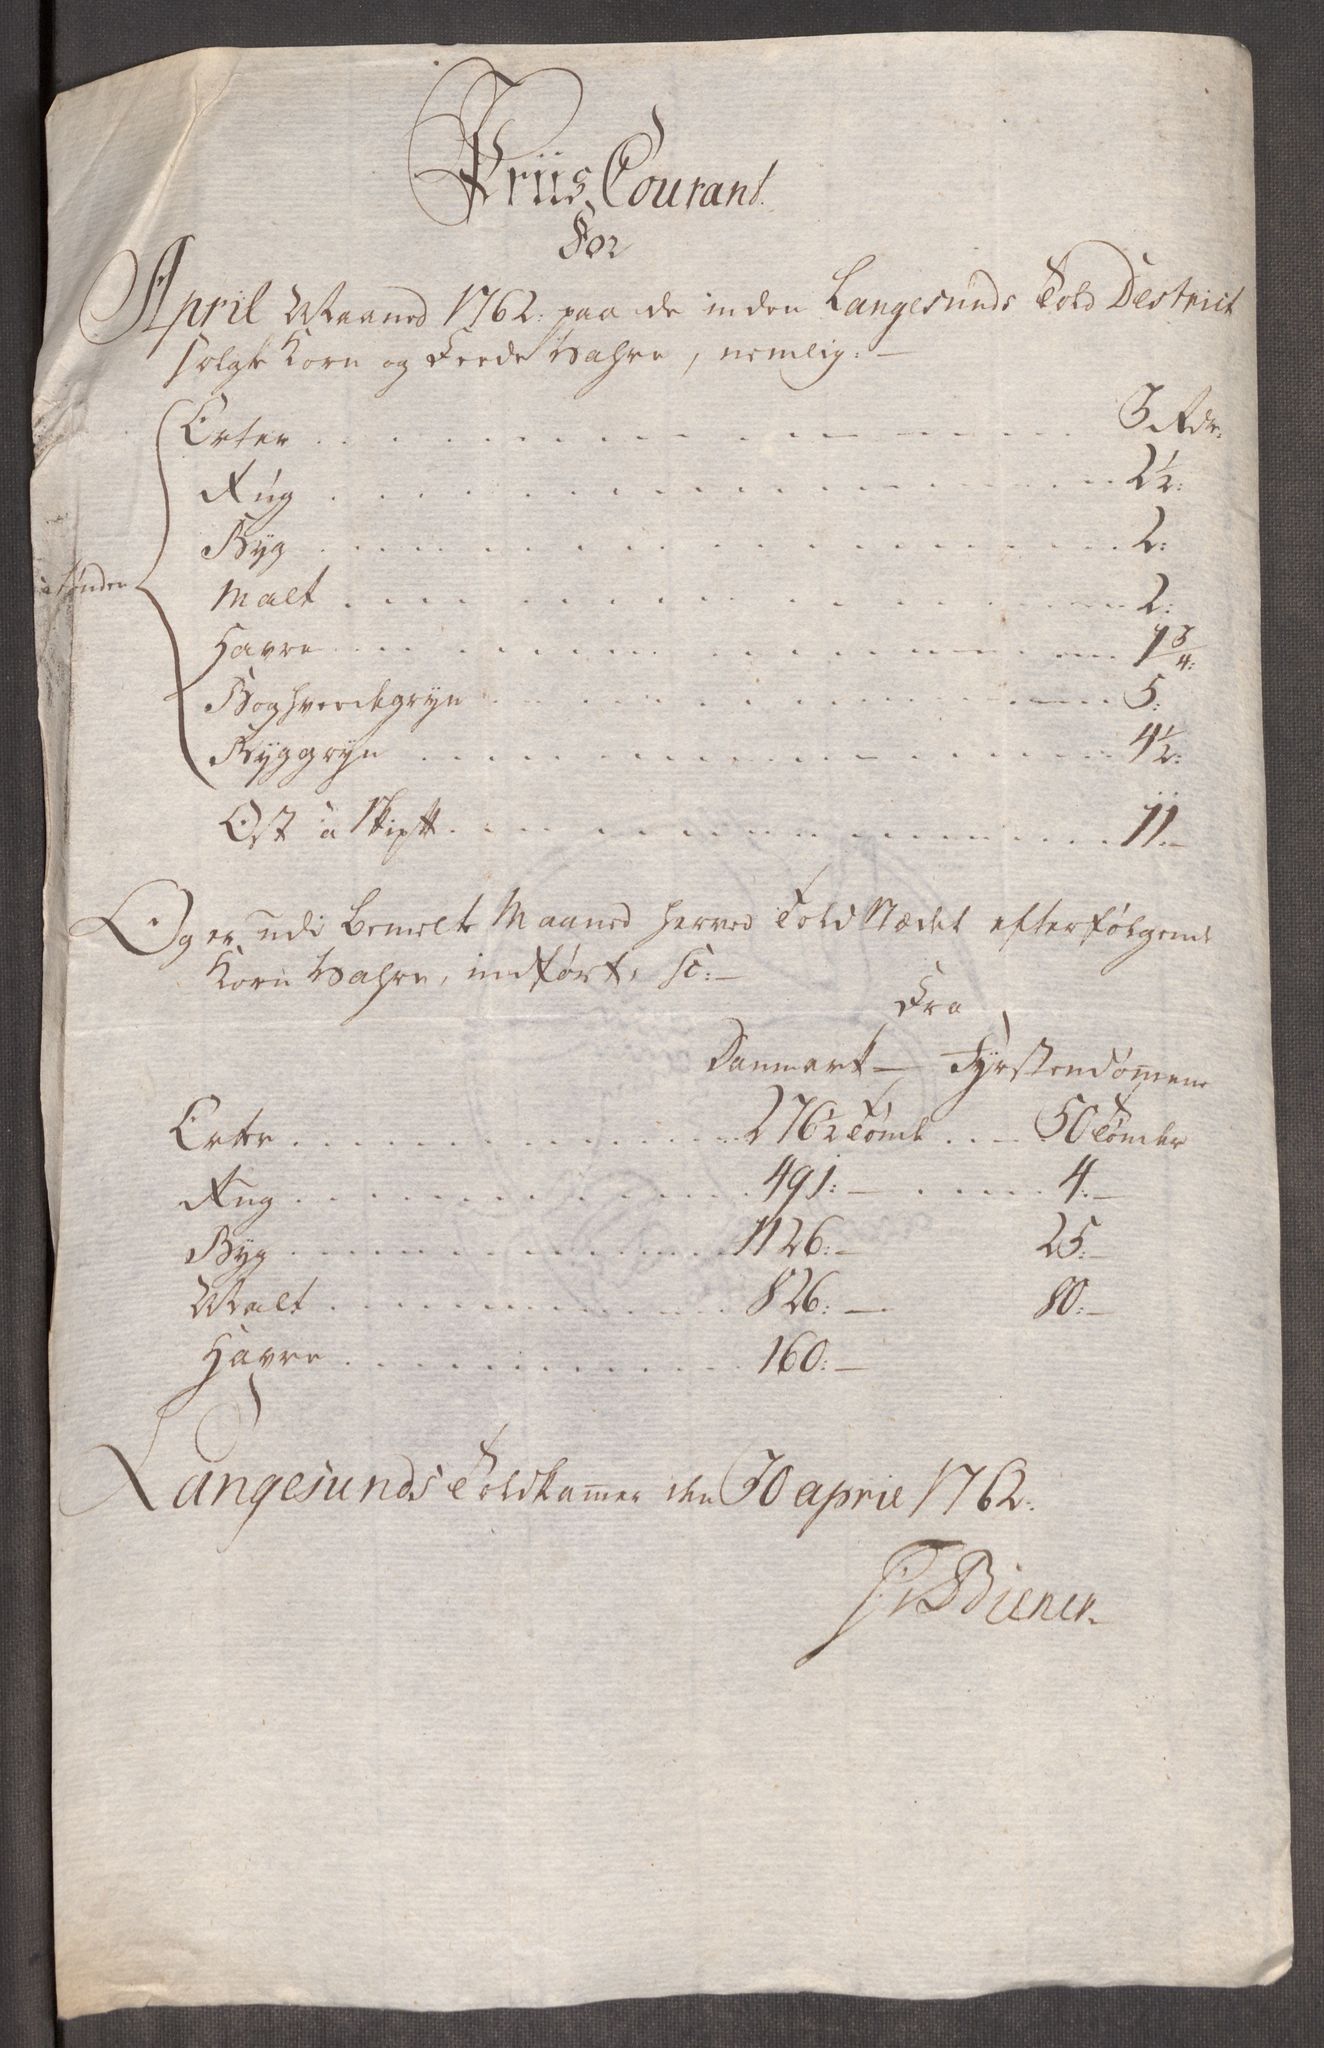 Priis Courant
For
April Maaned 1762: paa de inden Langesunds Told District
solgte Korn og Feede Vahre, nemlig:—
Erter . . . 3 Rdr:
Rug . . . 2½:
Byg . . . 2:
à Tønden
Malt . . . 2:
Havre . . . 1¾:
Boghvedegryn . . . 5:
Byggryn . . . 4½:
Ost à Skipt . . . 11:—
Og er udi bemelte Maaned herved Told Stædet efterfølgende
Korn Vahre, indført, sc:—
Fra
Danmark — Fyrstendømene
Erter . . . 276½ Tønde . . . 50 Tønder
Rug . . . 491:— . . . 4:—
Byg . . . 1126:— 25:—
Malt . . . 826:— 80:—
Havre . . . 160:—
Langesunds Toldkammer den 30 april 1762:
Biener